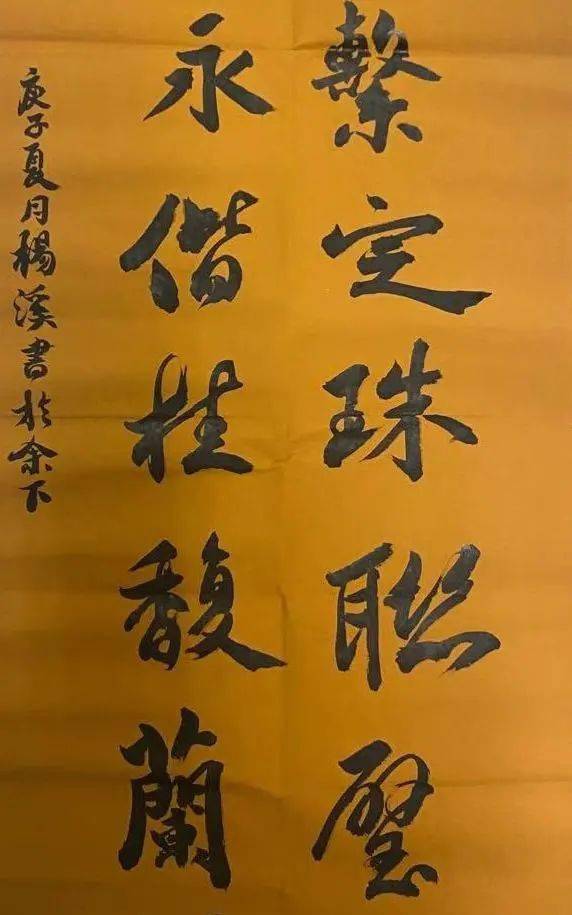 繫定珠聯璧
永偕桂馥蘭
庚子夏月楊溪書於余下